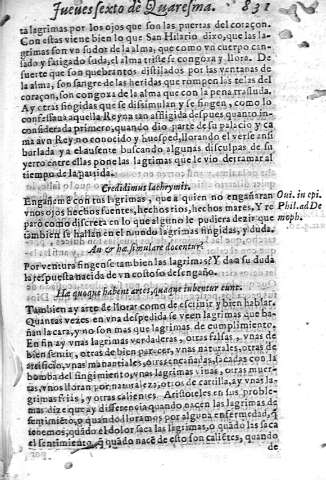 Jueues sexto de Quaresma. 831
ta lagrimas por los ojos que son las puertas del coraçon.
Con estas viene bien lo que San Hilario dixo, que las lagrimas
son vn sudor de la alma, que como vn cuerpo cansado
y fatigado suda, el alma triste se congoxa y llora. De
suerte que son quebrantos distilados por las ventanas de
la alma, son sangre de las heridas que rompen las telas del
coraçon, son congoxa de la alma que con la pena trasluda.
Ay otras fingidas que se dissimulan y se fingen, como lo
confessaua aquella Reyna tan affligida despues quanto inconsiderada
primero, quando dio parte de su palacio y cama
a vn Rey no conocido y huesped, llorando el verse ansi
burlada y a el ausente buscando algunas disculpas de su
yerro entre ellas pone las lagrimas que le vio derramar al
tiempo de la partida.
Credidimus lachrymis.
Engañeme con tus lagrimas, que a quien no engañaran
vnos ojos hechos fuentes, hechos rios, hechos mares, Y re
paro como discreta en lo que alguien le pudiera dezir que
tambien se hallan en el mundo lagrimas fingidas, y duda.
Oui. in epi.
Phil. ad De
moph.
An & hæ simulare docentur?
Por ventura fingense tambien las lagrimas? Y dan su duda
la respuesta nacida de vn costoso desengaño.
Ha quoque habent artes, quaque iubentur eunt.
Tambien ay arte de llorar como de escriuir y bien hablar.
Quantas vezes en vna despedida se veen lagrimas que bañan
la cara, y no son mas que lagrimas de cumplimiento.
En fin ay vnas lagrimas verdaderas, otras falsas, vnas de
bien sentir, otras de bien parecer, vnas naturales, otras de
artificio, vnas manantiales, otras encañadas, sacadas con la
bomba del fingimiento, vnas lagrimas viuas, otras muertas,
vnos lloran por naturaleza, otros de cartilla, ay vnas lagrimas
frias, y otras calientes. Aristoteles en sus problemas
dize que ay differencia quando nacen las lagrimas de
sentimiento, o quando lloramos por alguna enfermedad, q̃
tenemos, quando el dolor saca las lagrimas, o quando las saca
el sentimiento, q̃ quando nace de esto son calientes, quando
de